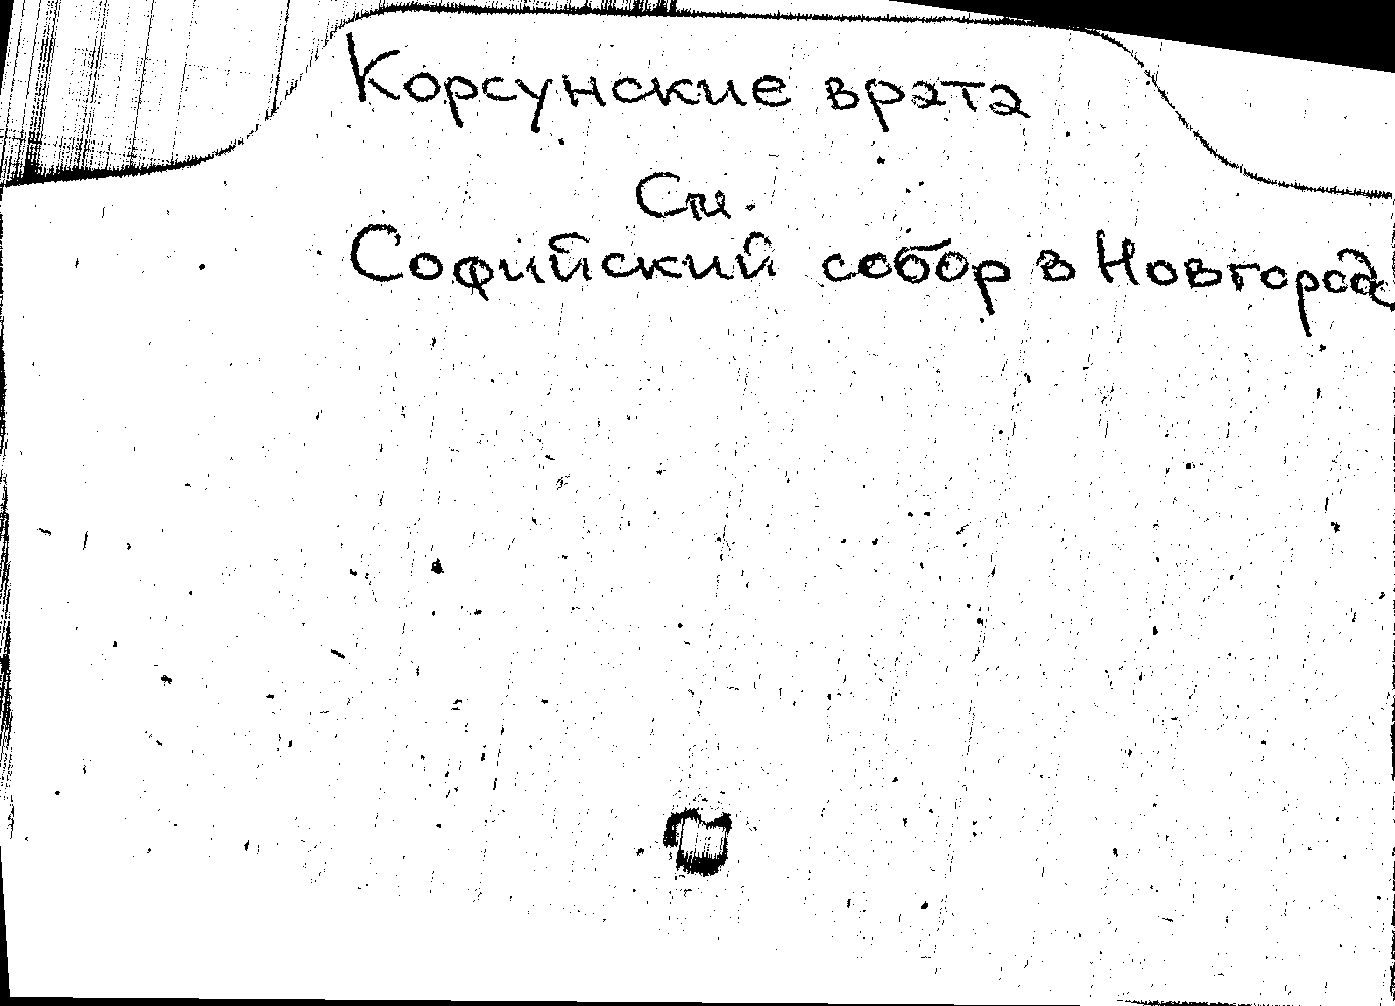 Корсунские врата
См.
Софийский собор в Новгород